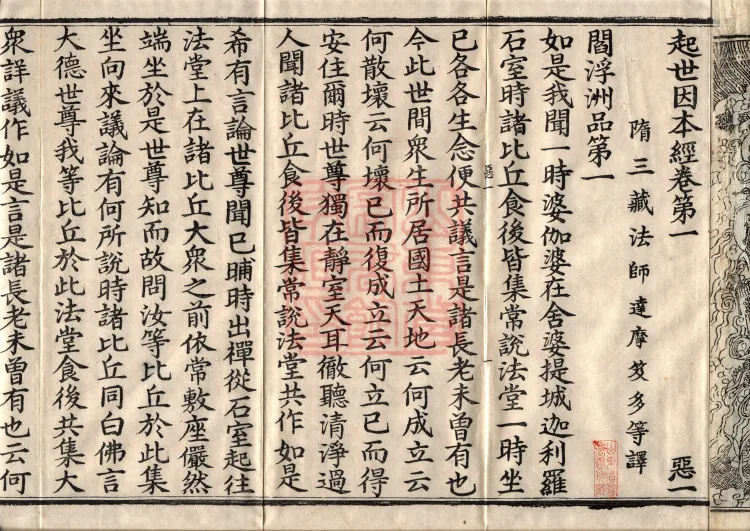 起世因本經卷第一 惡一
隋三藏法師達摩笈多等譯
閻浮洲品第一
如是我聞一時婆伽婆在舍婆提城迦利羅
石室時諸比丘食後皆集常說法堂一時坐
已各各生念便共議言是諸長老未曾有也
今此世間衆生所居國土天地云何成立云
何散壞云何壞已而復成立云何立已而得
安住爾時世尊獨在靜室天耳徹聽清淨過
人聞諸比丘食後皆集常說法堂共作如是
希有言論世尊聞已晡時出禪從石室起往
法堂上在諸比丘大衆之前依常敷座儼然
端坐於是世尊知而故問汝等比丘於此集
坐向來議論有何所說時諸比丘同白佛言
大德世尊我等比丘於此法堂食後共集大
衆詳議作如是言是諸長老未曾有也云何